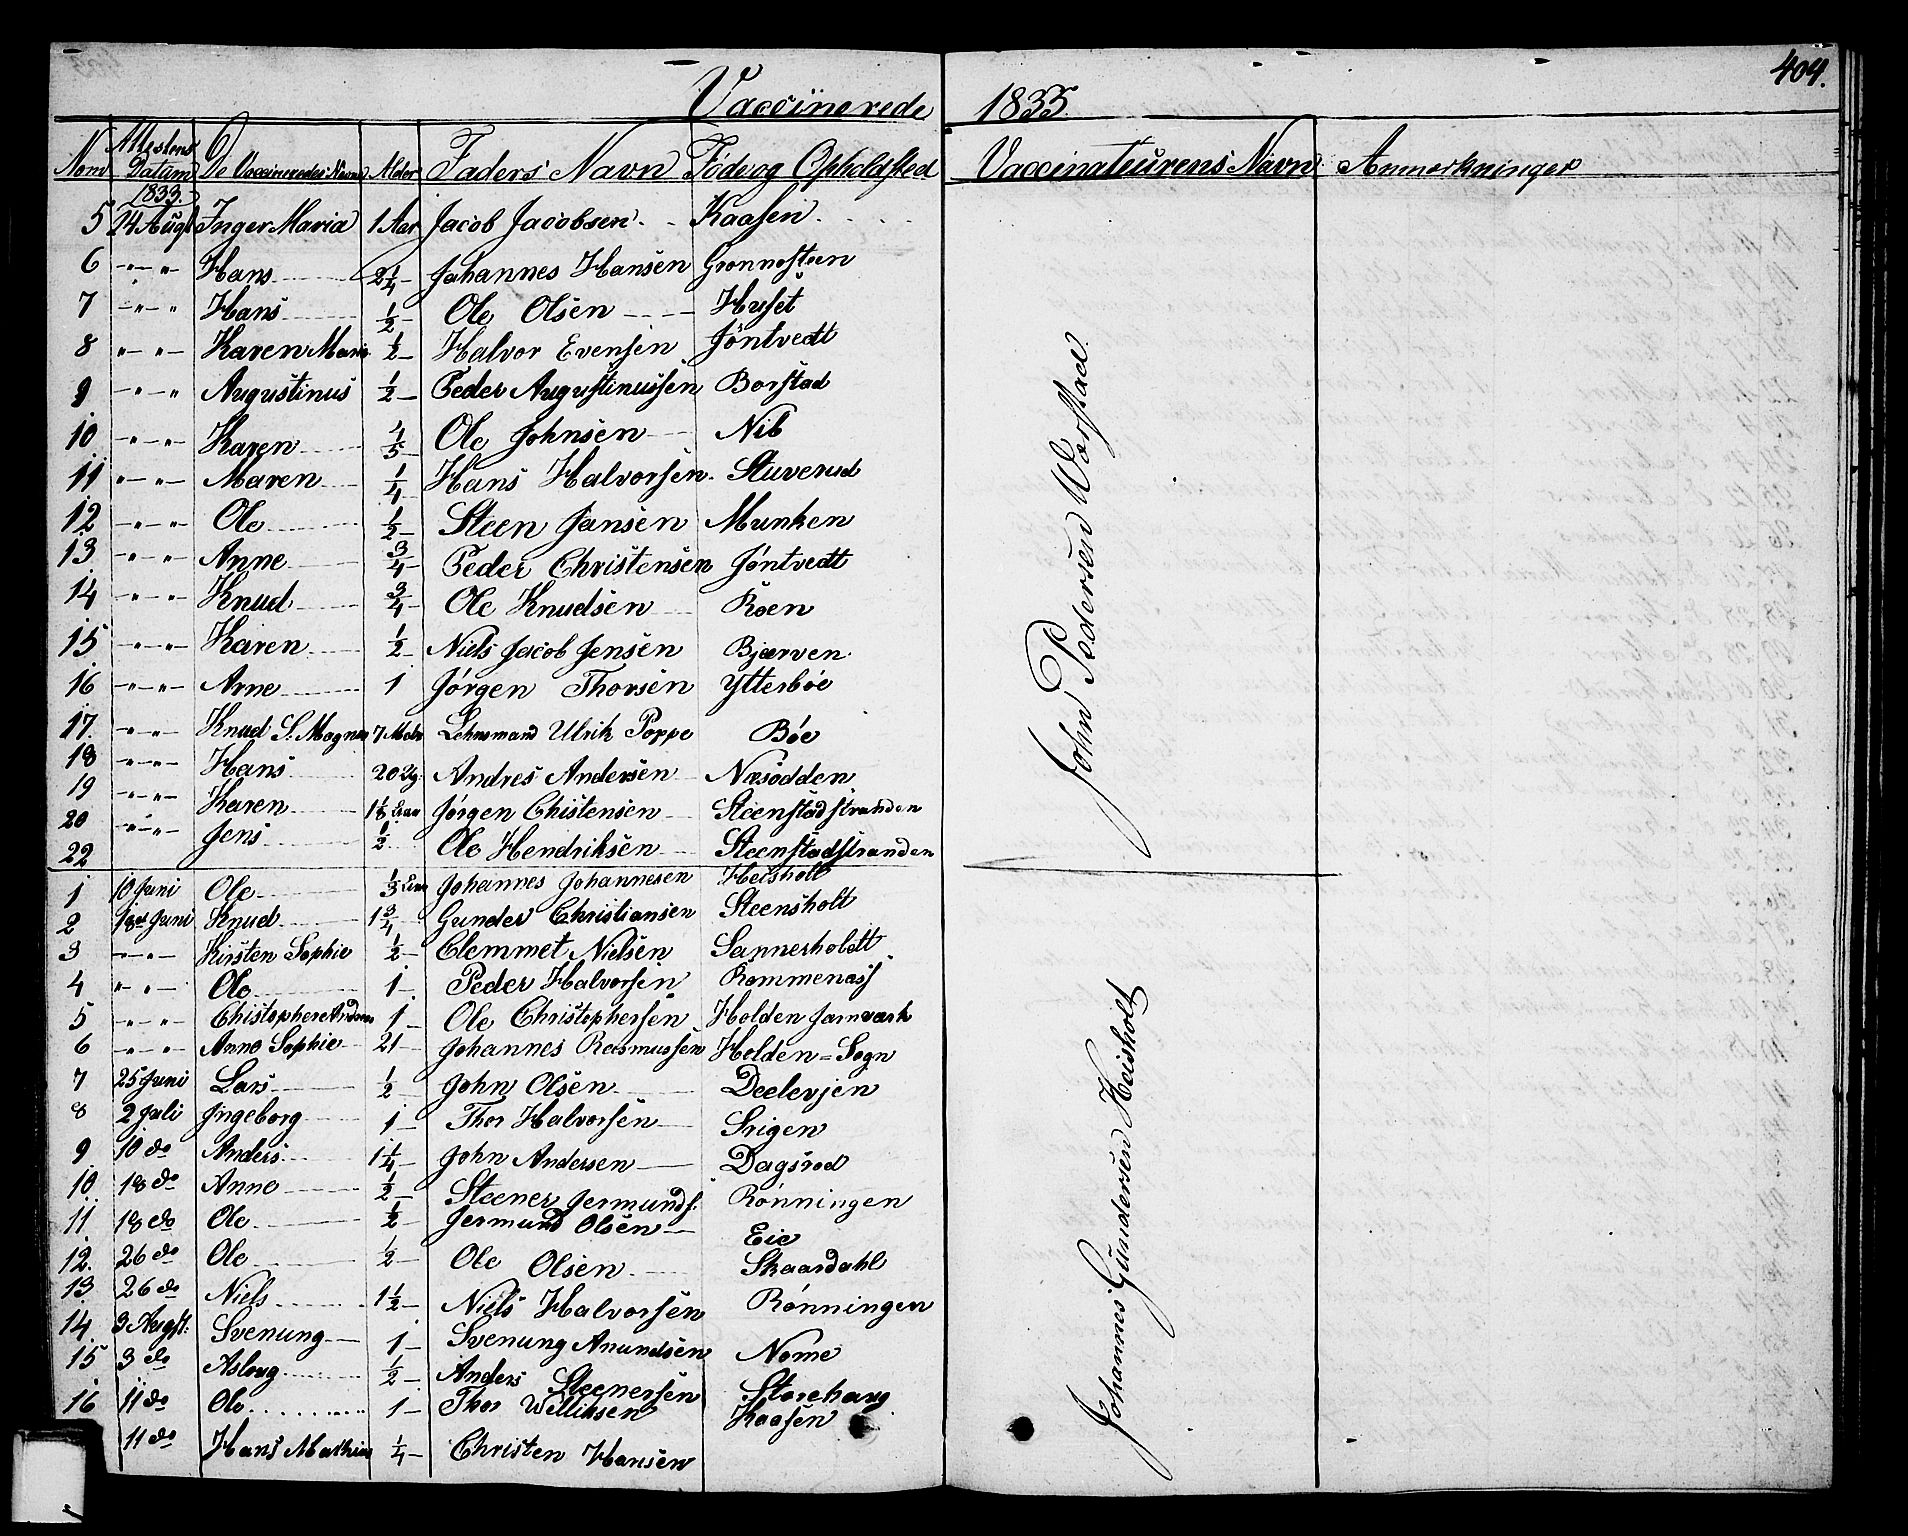 404.
Vaccinerede 1835.
Nom Attestens Datum De Vaccineredes Navne Alder Faders Navn Föde og Opholdsted Vaccinateurens Navn Anmerkninger
1833.
5 24 Augt Inger Maria 1 Aar Jacob Jacobsen Kaasen
6 -"-"- Hans 2 1/4 Johannes Hansen Grønnesteen
7 -"-" Hans 1/2 Ole Olsen Huset
8 "-"- Karen Marie 1/2 Halvor Evensen Jöntvedt
9 -"-" Augustinus 1/2 Peder Augustinussen Borstad
10 -"-"- Karen 4/5 Ole Johnsen Nib
11 "-"- Maren 1/4 Hans Halvorsen Stuverud
12 -"-"- Ole 1/2 Steen Jansen Munken
13. -"-"- Anne 3/4 Peder Christensen Jöntvedt
14 -"-"- Knud 3/4 Ole Knudsen Roen
15 -"-"- Karen 1/2 Niels Jacob Jensen Bjærven
16 -"-"- Arne 1 Jörgen Thorsen Ytterböe
17. -"-"- Knud S. Magnus 7 Mdr Lehnsmand Ulrik Poppe Böe
18 -"-"- Hans 20 Andres Andersen Næsodden
19 -"-"- Karen 1 1/8 Jörgen Chistensen Steenstadstranden
20 -"-"- Jens 1/2 Ole Hendriksen Steenstadstranden
22
John Pedersen Worstad
1 10 Juni Ole 1/3 Johannes Johannesen Heisholt
2 18de Juni Knud 1 3/4 Gunder Christiansen Steensholt
3 -"-"- Kirsten Sophie 1/2 Clemmet Nielsen Sannerholdt
4 "-"- Ole 1 Peder Halvorsen Rommenæss
5 -"-"- Chistophere Andreas 1 Ole Christophersen Holden Jarnværk
6 -"-"- Anne Sophie 21 Johannes Rasmussen Holden=Sogn
7 25 Juni Lars 1/2 John Olsen Deelevjen
8 2 Juli Ingeborg 1 Thor Halvorsen Srigen
9 10 do Anders 1 1/4 John Andersen Dagsrod
10 18 do Anne 1/2 Steener Jermunds. Rönningen
11. 18 do Ole 1/2 Jermund Olsen Eie
12. 26 do Ole 1/2 Ole Olsen Skaardahl
13 26 do Niels 1 1/2 Niels Halvorsen Rönningen
14 3 Augst: Svenung 1 Svenung Anundsen Nome
15 3 do Asloug 1/2 Anders Steenersen Storehaug
16 11 do Ole 1 Thor Willeksen Kaasen
11 do Hans Mathias 1/4 Christen Hansen
Johannes Gundersen Heisholt